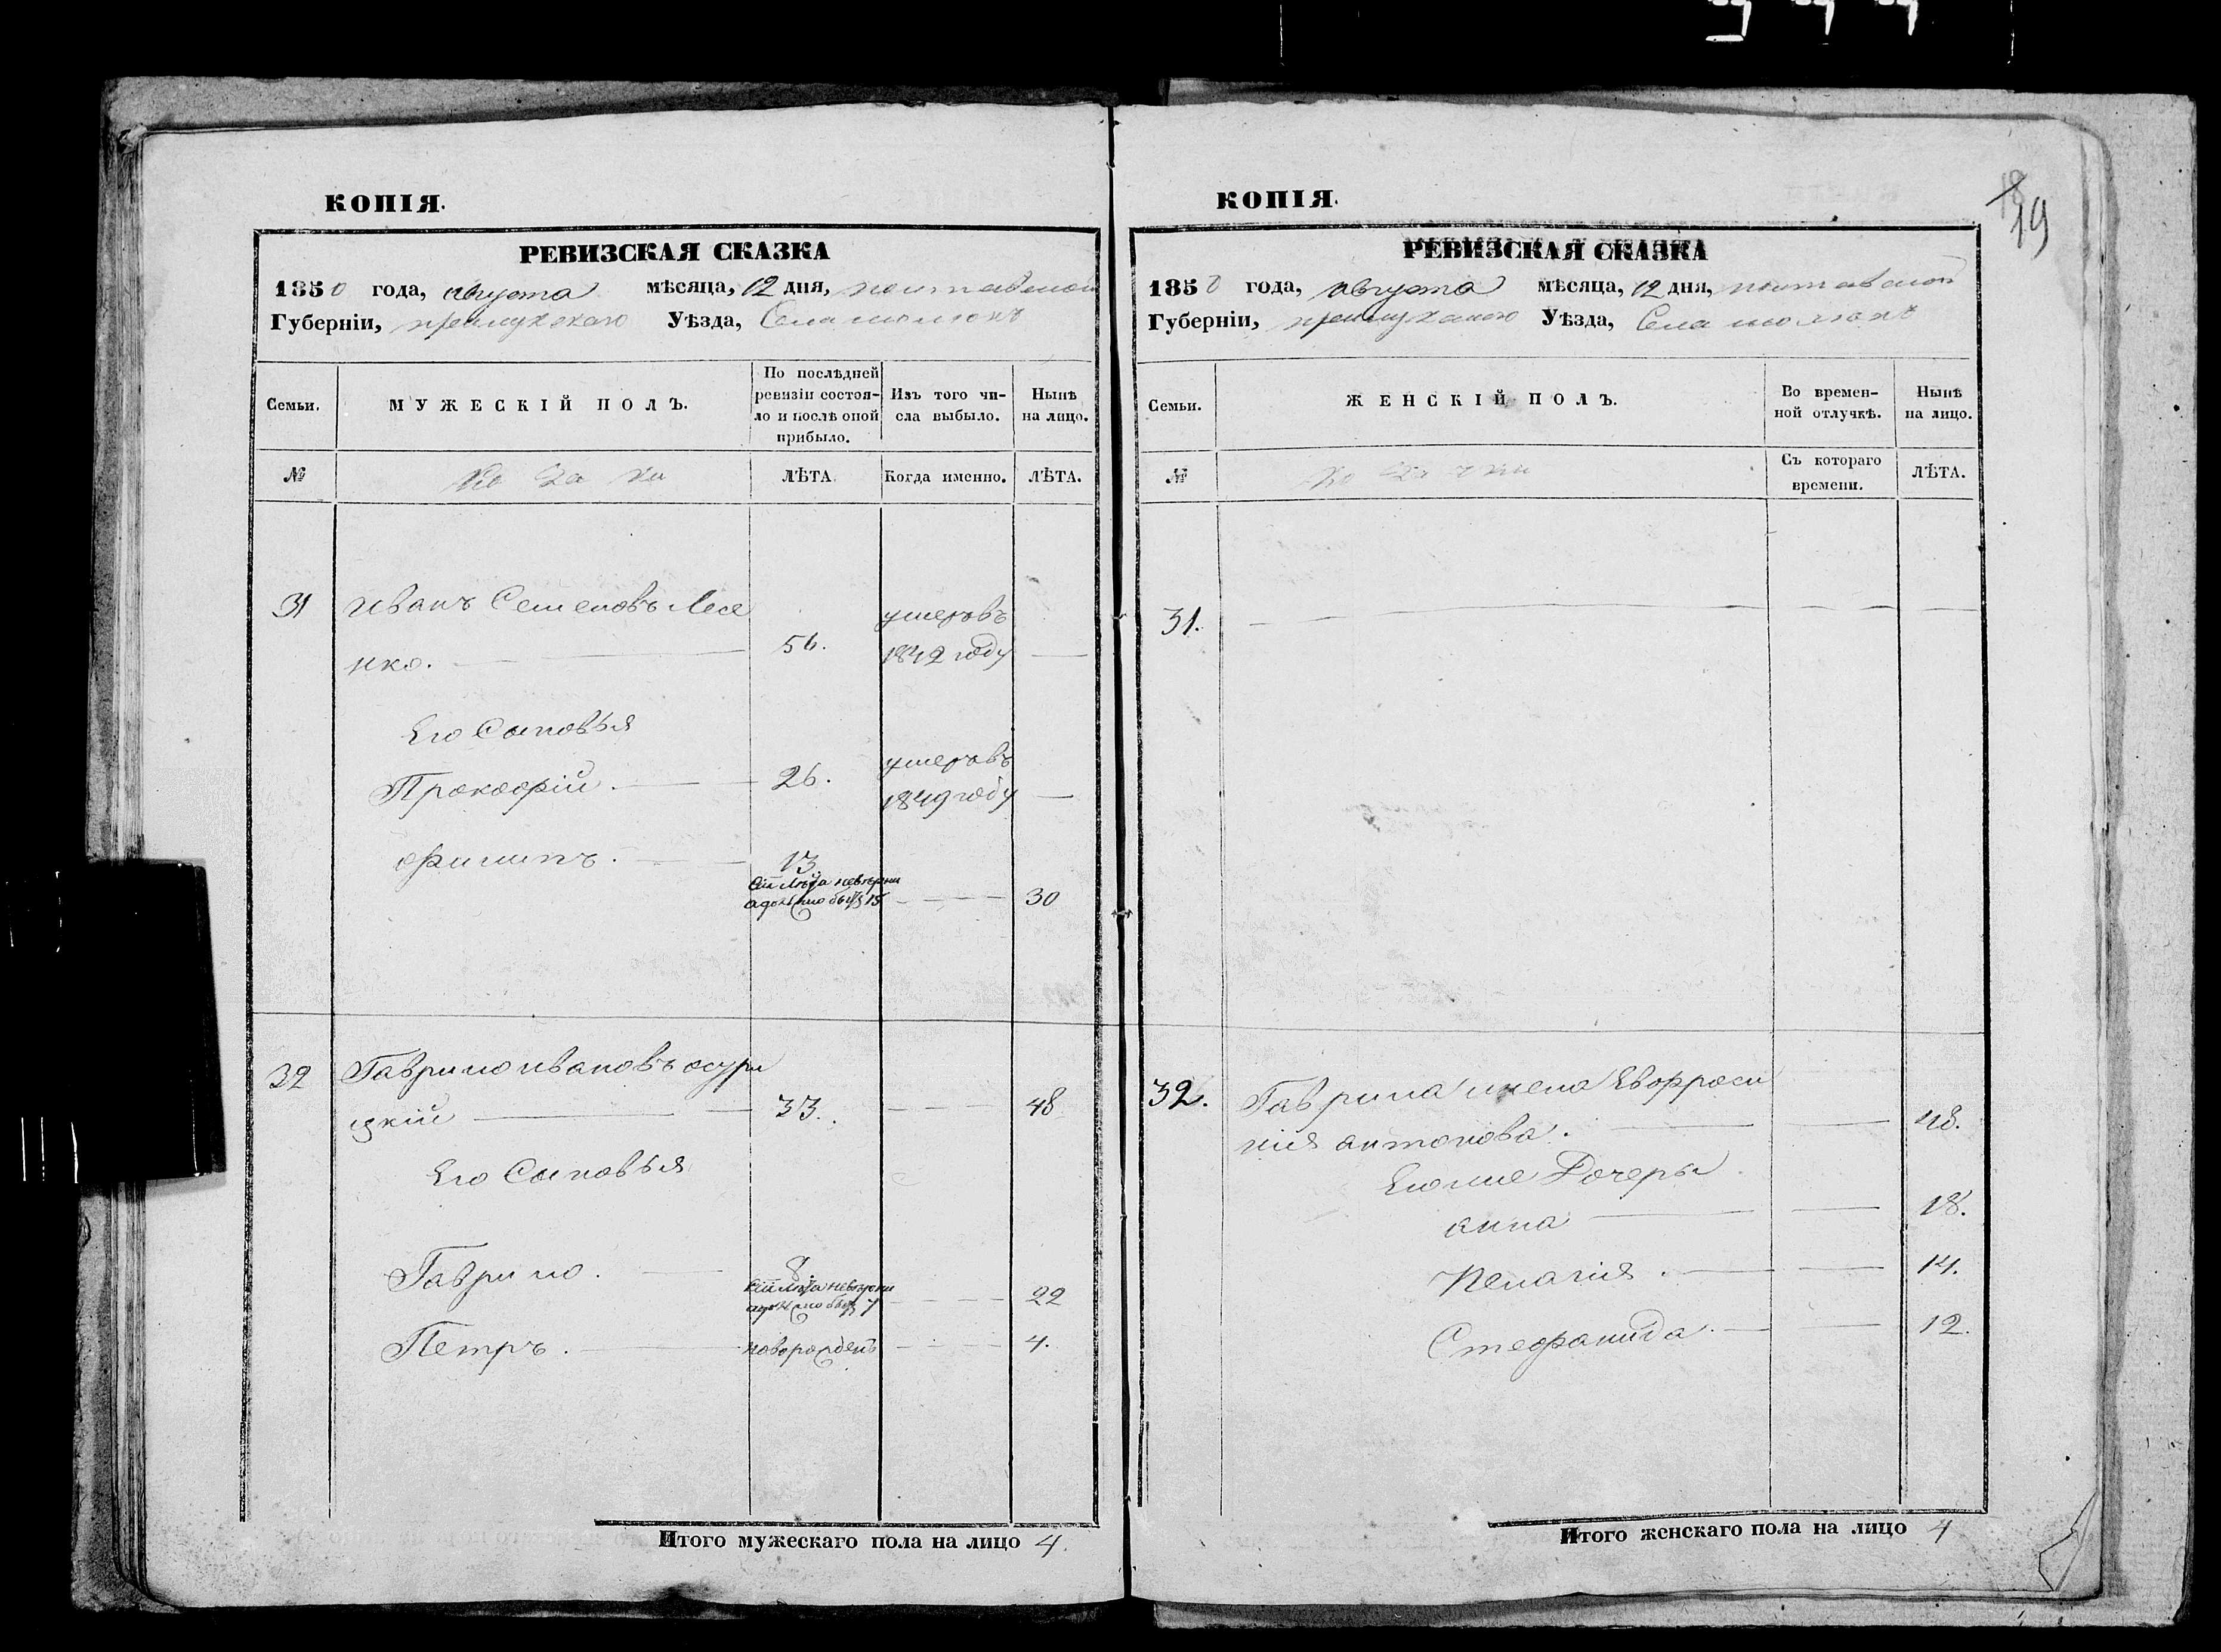 19
КОПІЯ.
РЕВИЗСКАЯ СКАЗКА
1850 года, августа мѣсяца, 12 дня, полтавской
Губерніи, прилукского Уѣзда, Села
Семьи. МУЖЕСКІЙ ПОЛЪ. По послѣдней ревизіи состояло и послѣ оной прибыло. Изъ того числа выбыло. Нынѣ на лицо.
№ Козаки ЛѢТА. Когда именно. ЛѢТА.
31 Иванъ Семеновъ Лесе
нко. 56. умеръ въ 1842 году
Его Сыновья
Прокофій. 26. умеръ въ 1849 году
Филипъ. 13
сіи лѣта невѣрни
а должно быть 15 30
32 Гаврило Ивановъ
цкій 33. 48
Его Сыновья
Гаврило. 8.
сіи лѣта невѣрни
а должно быть 7 22
Петръ. новорожденъ 4.
Итого мужескаго пола на лицо 4.
КОПІЯ.
РЕВИЗСКАЯ СКАЗКА
1850 года, августа мѣсяца, 12 дня, полтавской
Губерніи, прилукского Уѣзда, Села
Семьи. ЖЕНСКІЙ ПОЛЪ. Во временной отлучкѣ. Нынѣ на лицо.
№ Козачки Съ котораго времени. ЛѢТА.
31.
32. Гаврила жена Евфроси
нія антонова. 48.
Ево же Дочеры
анна 18.
Пелагія. 14.
Стефанида. 12.
Итого женскаго пола на лицо 4